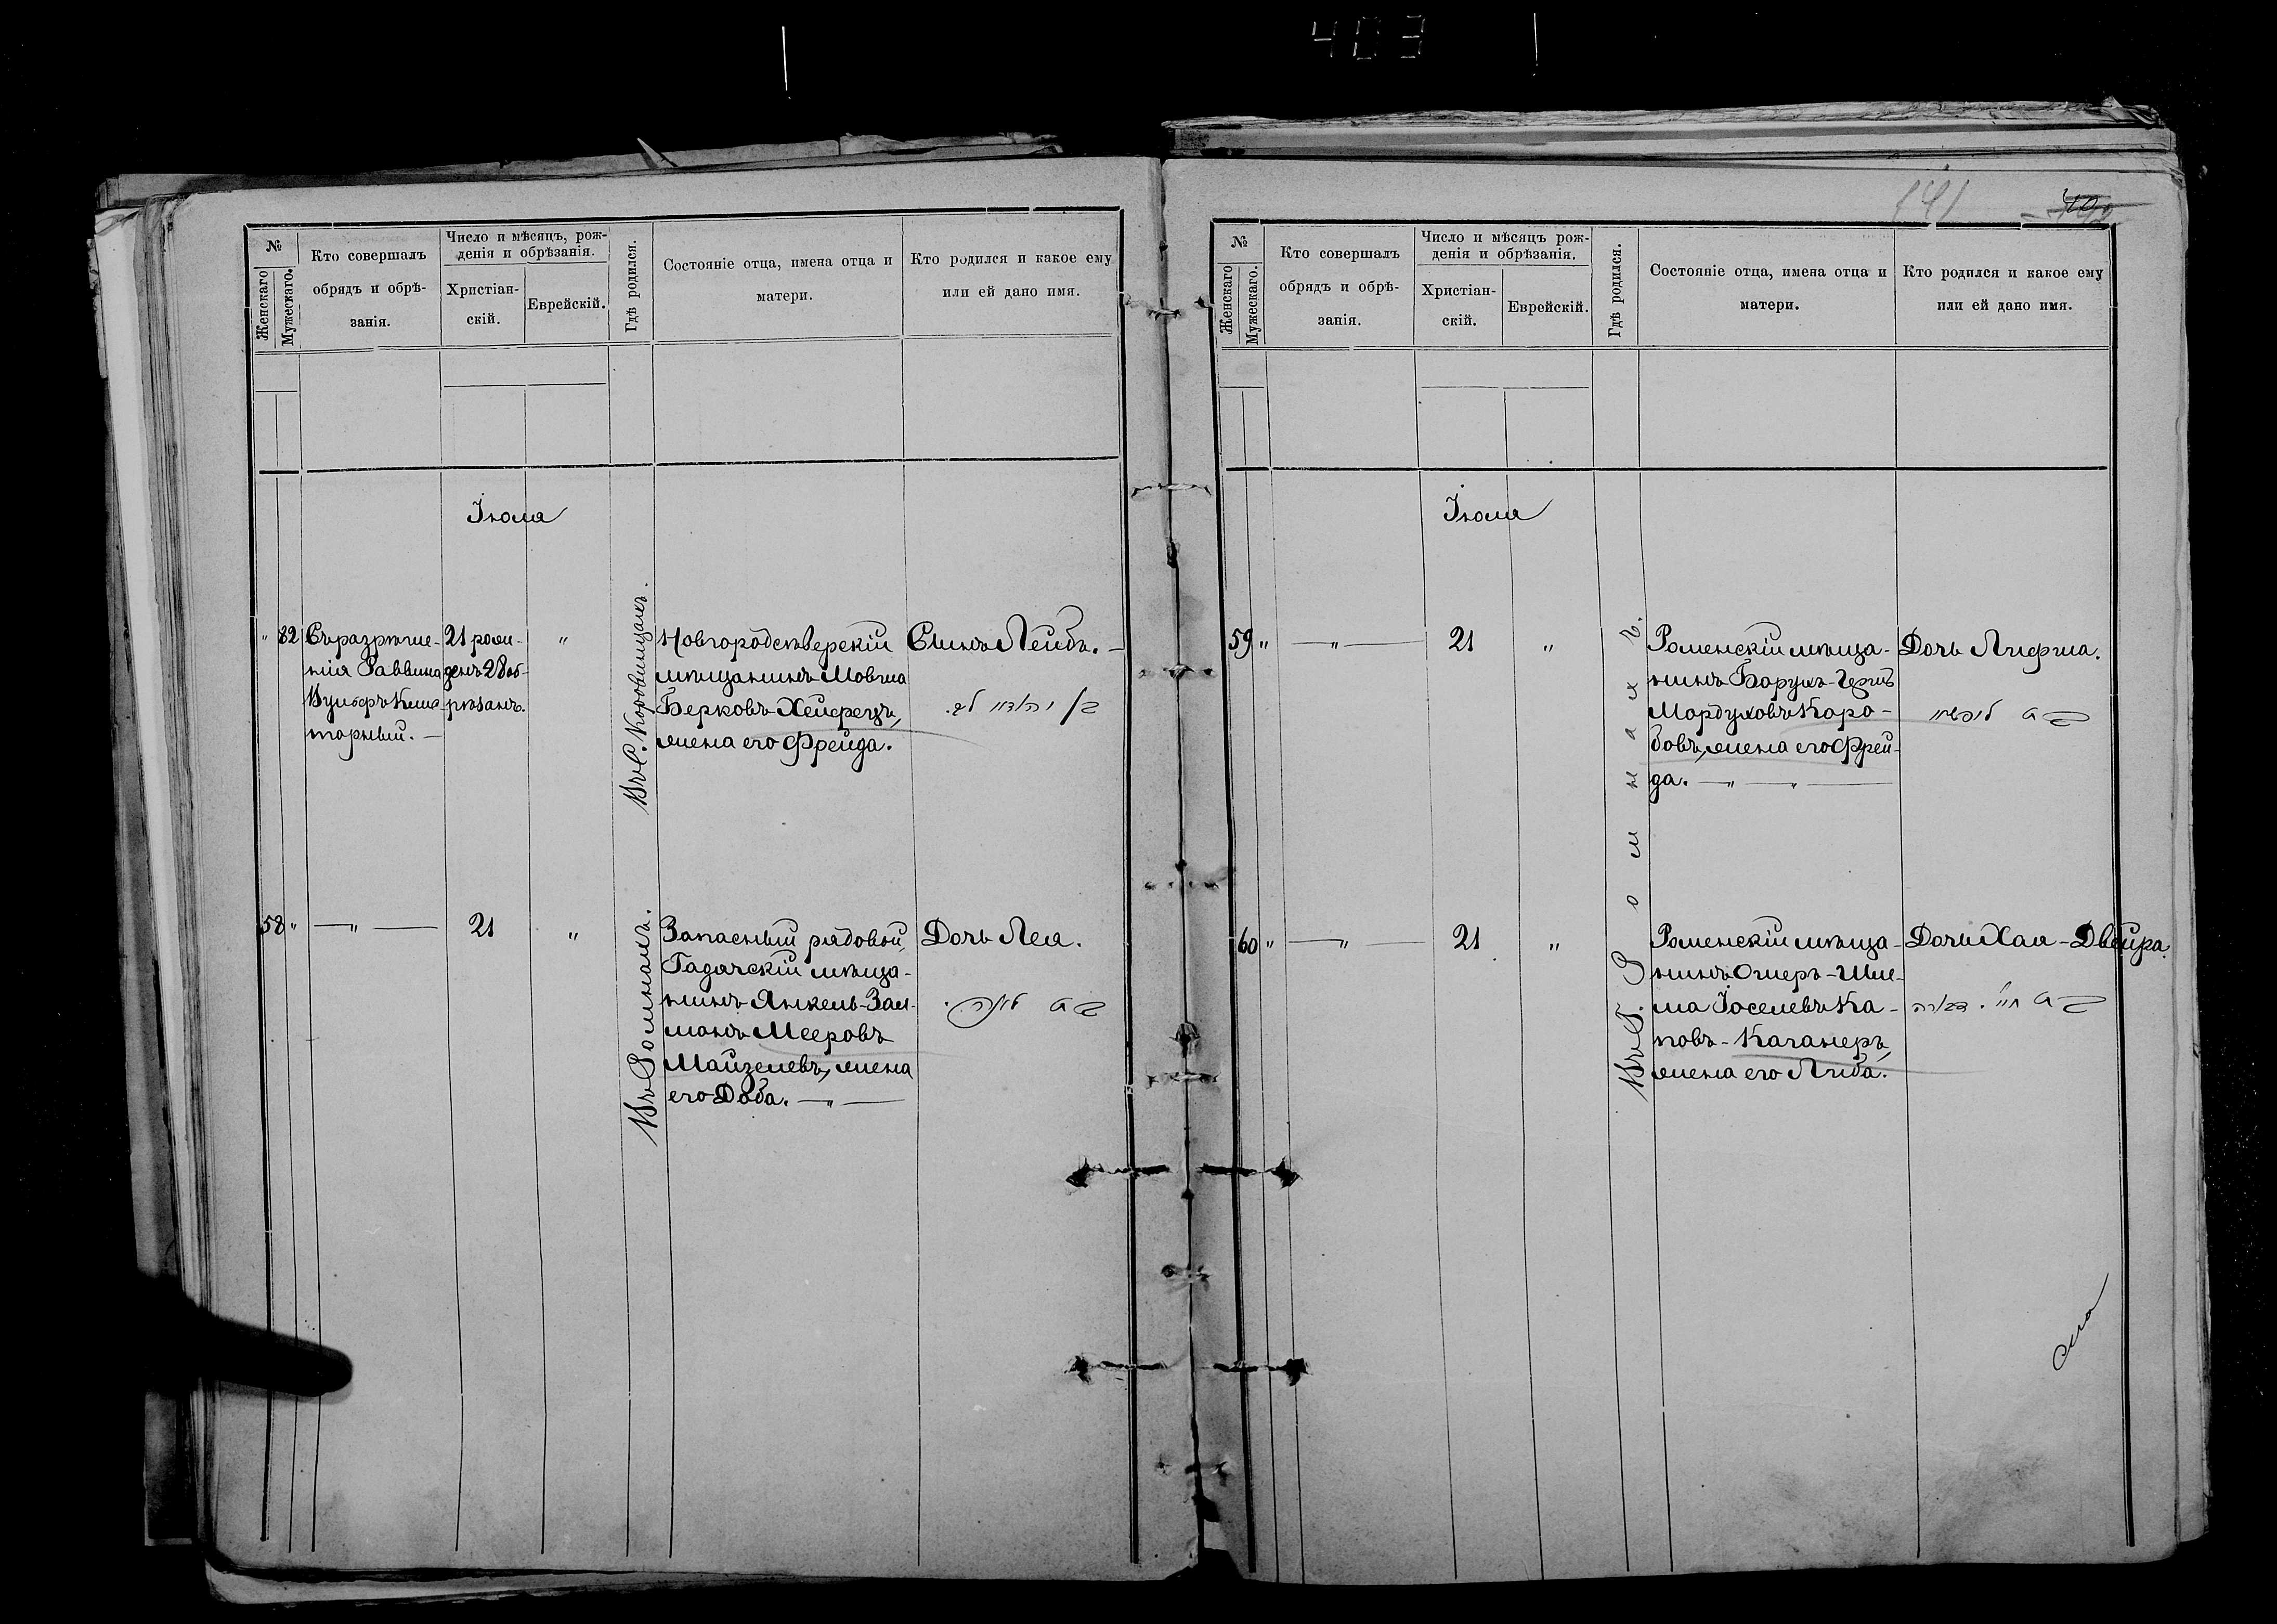 403
141
№
Женскаго
Мужескаго.
Кто совершалъ
обрядъ и обрѣ-
занія.
Число и мѣсяцъ, рож-
денія и обрѣзанія.
Христіан-
скій.
Еврейскій.
Гдѣ родился.
Состояніе отца, имена отца и
матери.
Кто родился и какое ему
или ей дано имя.
Іюля
" 82
Съ разрѣше-
нія Раввина
Вульфъ
торный. —
21 рож-
денъ 28 об-
рѣзанъ.
"
Въ С. Коровинцахъ.
Новгородсѣверскій
мѣщанинъ Мовша
Берковъ Хейфецъ,
жена его Фрейда.
Сынъ Лейбъ. —
58 "
— " —
21
"
Въ Ромнахъ.
Запасный рядовой,
Гадячскій мѣща-
нинъ Янкель-Зал-
манъ Мееровъ
Майзелевъ, жена
его Доба. — " —
Дочь Лея.
№
Женскаго
Мужескаго.
Кто совершалъ
обрядъ и обрѣ-
занія.
Число и мѣсяцъ рож-
денія и обрѣзанія.
Христіан-
скій.
Еврейскій.
Гдѣ родился.
Состояніе отца, имена отца и
матери.
Кто родился и какое ему
или ей дано имя.
Іюля
59 "
— " —
21
"
Въ Г. Ромнахъ.
Роменскій мѣща-
нинъ Борухъ-Гершъ
Мордуховъ Каро-
бовъ, жена его Фрей-
да. — " — " —
Дочь Лифша.
60 "
— " —
21
"
Роменскій мѣща-
нинъ Ошеръ-Шле-
ма Іоселевъ Ка-
повъ-Каганеръ,
жена его Либа.
Дочь Хая-Двейра.